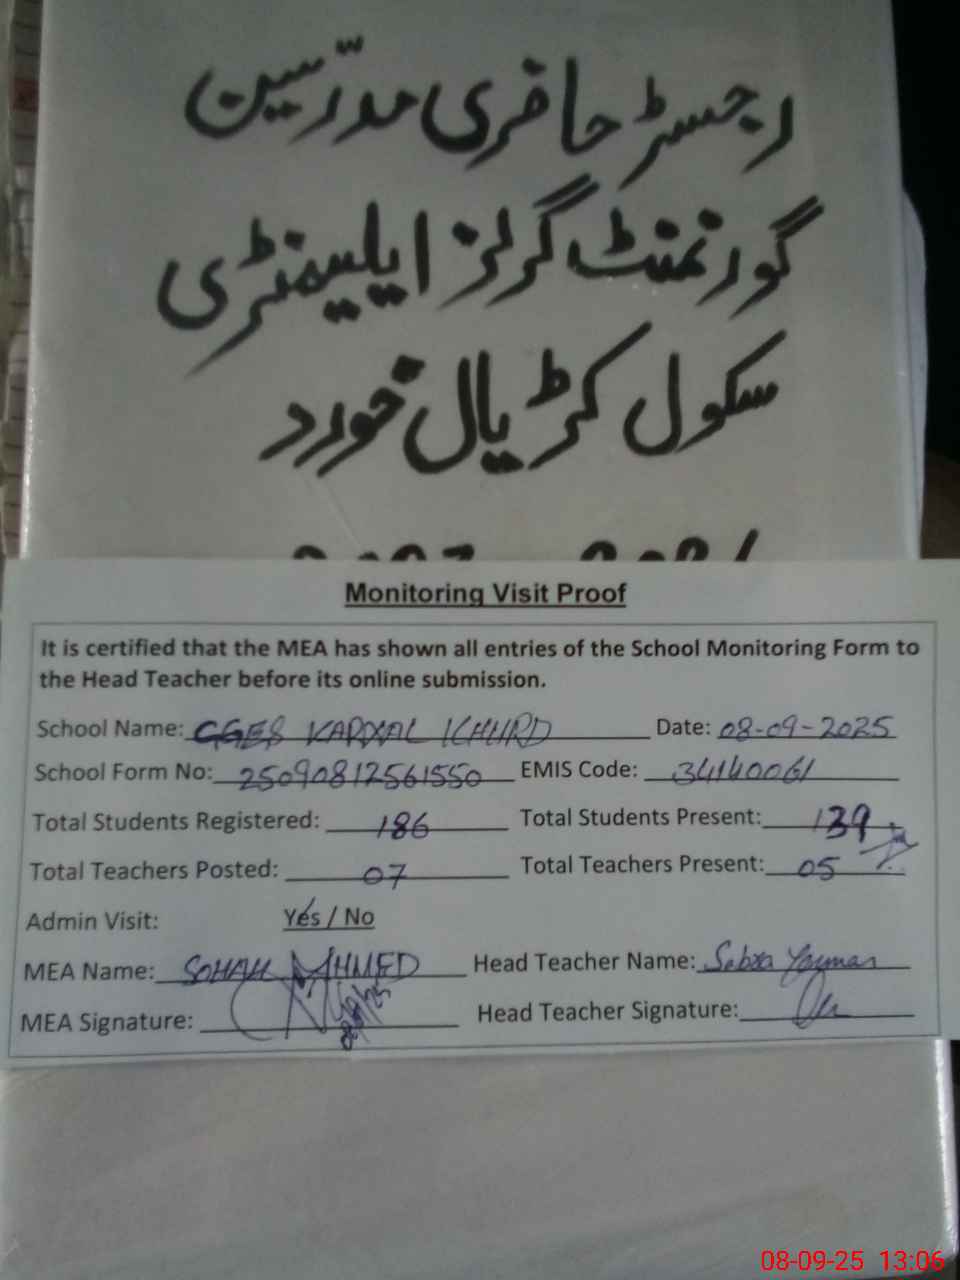 رجسٹر حاضری مدرّسین
گورنمنٹ گرلز ایلیمنٹری
سکول کڑیال خورد
Monitoring Visit Proof
It is certified that the MEA has shown all entries of the School Monitoring Form to
the Head Teacher before its online submission.
School Name: GGES KARYAL KHURD Date: 08-09-2025
School Form No: 25090812561550 EMIS Code: 34140061
Total Students Registered: 186 Total Students Present: 139
Total Teachers Posted: 07 Total Teachers Present: 05
Admin Visit: Yes / No
MEA Name: SOHAIL AHMED Head Teacher Name: Sabra Yasmin
MEA Signature: Head Teacher Signature:
08-09-25 13:06